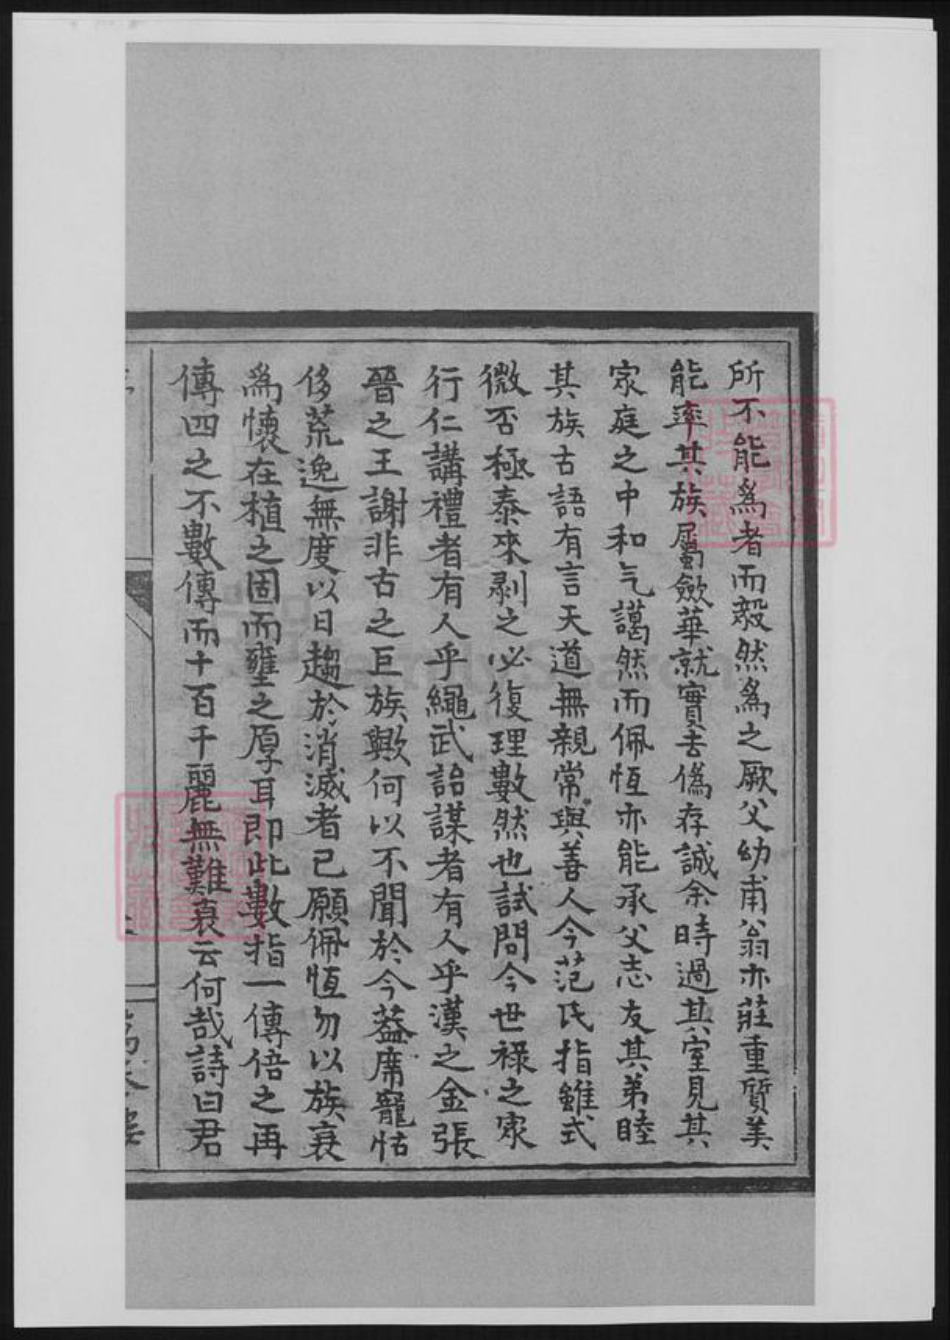 所不能為者而毅然為之厥父幼甫翁亦莊重質美
能率其族屬斂華就實去偽存誠余時過其室見其
家庭之中和气藹然而佩恆亦能承父志友其弟睦
其族古語有言天道無親常與善人今范氏指雖式
微否極泰來剥之必復理數然也試問今世祿之家
行仁講禮者有人乎繩武詒謀者有人乎漢之金張
晉之王謝非古之巨族歟何以不聞於今葢席寵怙
侈荒逸無度以日趨於消滅者已願佩恆勿以族衰
為懷在植之固而壅之厚耳即此數指一傳倍之再
傳四之不數傳而十百千麗無難衰云何哉詩曰君